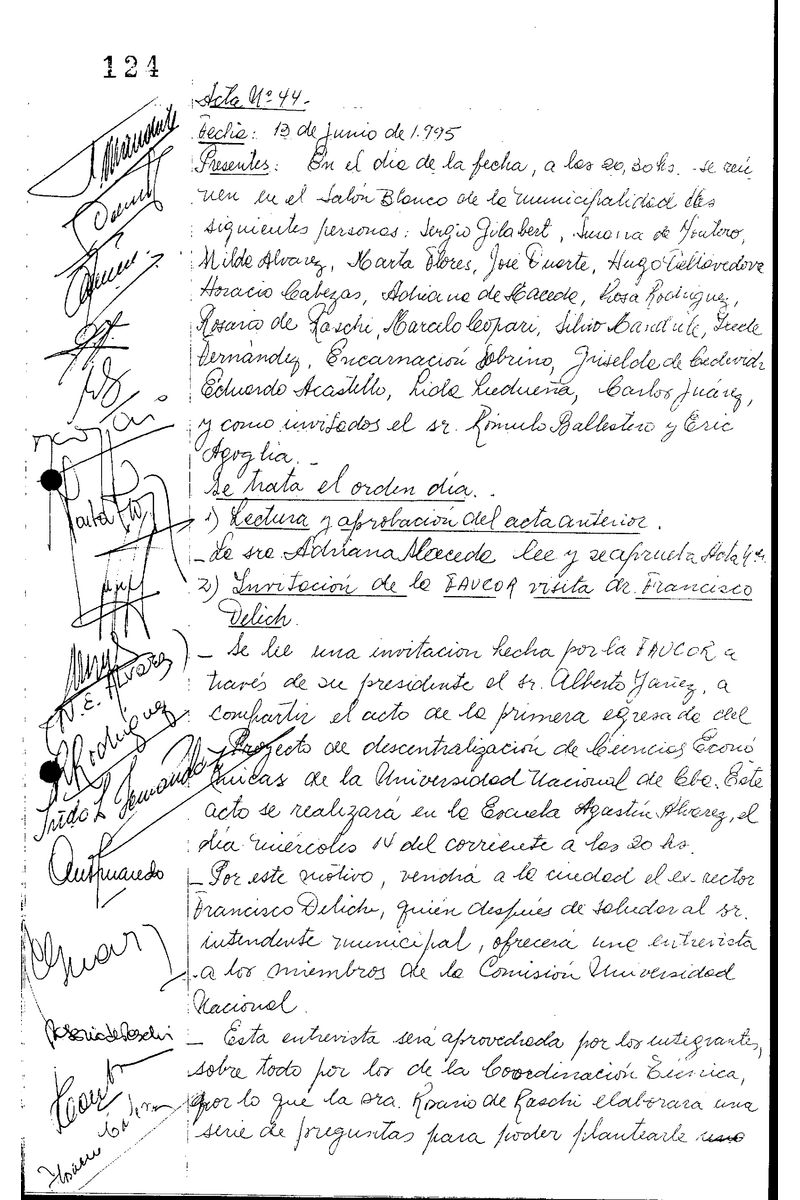 124
Acta Nº 44.-
Fecha: 13 de junio de 1.995
Presentes: En el día de la fecha, a las 20,30 hs. se reú
nen en el Salón Blanco de la municipalidad las
siguientes personas: Sergio Gilabert, Susana de Montero,
Nilda Alvarez, Marta Flores, José Duarte, Hugo
Horacio Cabezas, Adriana de Macedo, Rosa Rodríguez,
Rosario de Raschi, Marcelo Copari, Silvio Mandrile,
Fernández, Encarnación Sobrino, Griselda de
Eduardo Acastello, Lida Ludueña, Carlos Juárez,
y como invitados el sr. Rómulo Ballestero y Eric
Agoglia.-
Se trata el orden día..
1) Lectura y aprobación del acta anterior.
-La sra. Adriana Macedo lee y se aprueba Acta
2) Invitación de la FAUCOR visita dr. Francisco
Delich.
- Se lee una invitación hecha por la FAUCOR a
través de su presidente el sr. Alberto Yañez, a
compartir el acto de la primera egresada del
Proyecto de descentralización de Ciencias Econó
micas de la Universidad Nacional de Cba. Este
acto se realizará en la Escuela Agustín Alvarez, el
día miércoles 14 del corriente a las 20 hs.
- Por este motivo, vendrá a la ciudad el ex-rector
Francisco Delich, quién después de saludar al sr.
intendente municipal, ofrecerá una entrevista
a los miembros de la Comisión Universidad
Nacional.
- Esta entrevista será aprovechada por los integrantes,
sobre todo por los de la Coordinación Técnica,
por lo que la sra. Rosario de Raschi elaborará una
serie de preguntas para poder plantearle
Mandrile
Marta
N. E. Alvarez
R. Rodríguez
Fernández
Rosario de Raschi
Horacio Cabezas